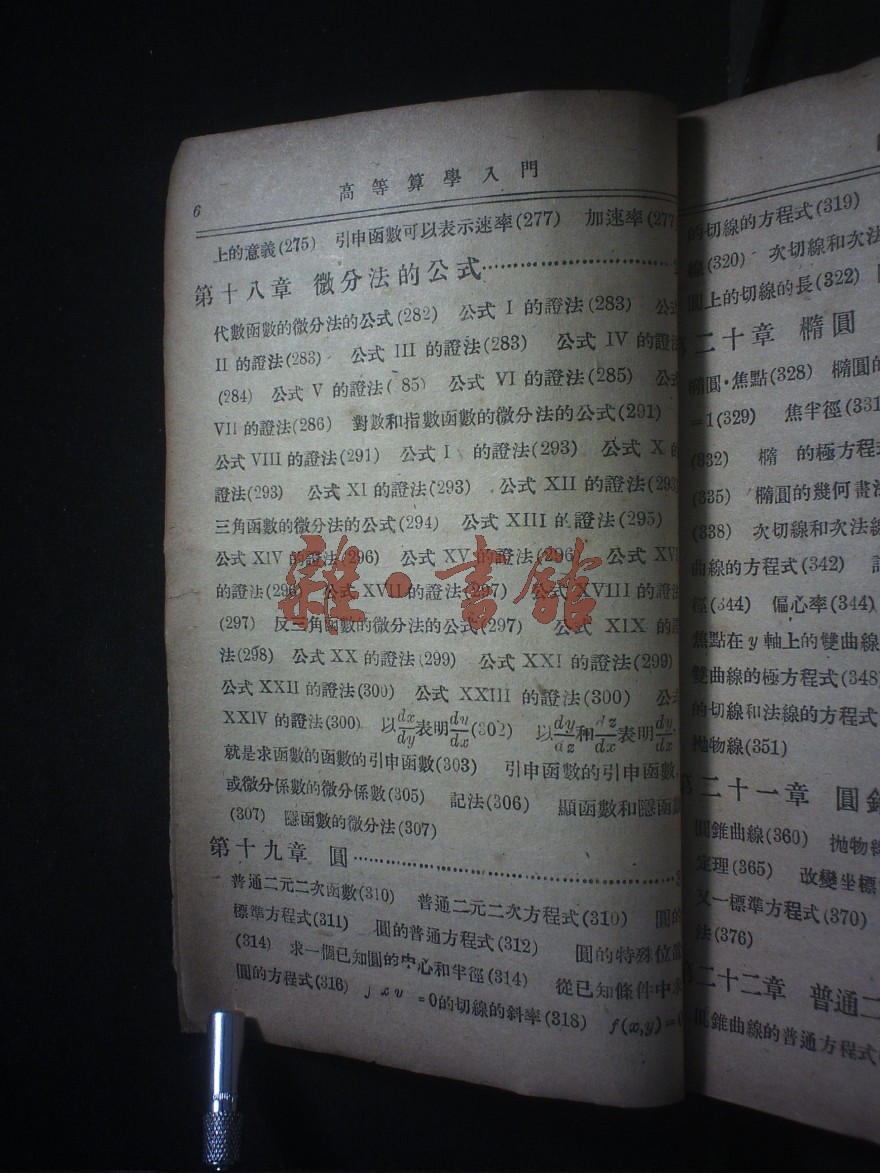 6
高等算學入門
上的意義(275) 引申函數可以表示速率(277) 加速率(277
第十八章 微分法的公式
代數函數的微分法的公式(282) 公式 I 的證法(283) 公式
II 的證法(283) 公式 III 的證法(283) 公式 IV 的證法
(284) 公式 V 的證法( 85) 公式 VI 的證法(285) 公式
VII 的證法(286) 對數和指數函數的微分法的公式(291)
公式 VIII 的證法(291) 公式 I 的證法(293) 公式 X 的
證法(293) 公式 XI 的證法(293) 公式 XII 的證法(293
三角函數的微分法的公式(294) 公式 XIII 的證法(295)
公式 XIV 的證法(296) 公式 XV 的證法(296 公式 XVI
的證法(296) 公式 XVII 的證法(297) 公式 XVIII 的證法
(297) 反三角函數的微分法的公式(297) 公式 XIX 的證
法(298) 公式 XX 的證法(299) 公式 XXI 的證法(299)
公式 XXII 的證法(300) 公式 XXIII 的證法(300) 公式
XXIV 的證法(300) 以dx/dy表明dy/dx(302) 以dy/dz和dz/dx表明dy/dx
就是求函數的函數的引申函數(303) 引申函數的引申函數
或微分係數的微分係數(305) 記法(306) 顯函數和隱函數
(307) 隱函數的微分法(307)
第十九章 圓
普通二元二次函數(310) 普通二元二次方程式(310) 圓的
標準方程式(311) 圓的普通方程式(312) 圓的特殊位置
(314) 求一個已知圓的中心和半徑(314) 從已知條件中求
圓的方程式(316) =0的切線的斜率(318) f(x,y)=0
的切線的方程式(319)
線(320) 次切線和次法
圓上的切線的長(322)
第二十章 橢圓
橢圓·焦點(328) 橢圓的
=1(329) 焦半徑(331
(332) 橢 的極方程式
(335) 橢圓的幾何畫法
(338) 次切線和次法線
曲線的方程式(342)
徑(344) 偏心率(344)
焦點在 y 軸上的雙曲線
雙曲線的極方程式(348
的切線和法線的方程式
拋物線(351)
第二十一章 圓錐
圓錐曲線(360) 拋物線
定理(365) 改變坐標
又一標準方程式(370)
法(376)
第二十二章 普通二
圓錐曲線的普通方程式
雜·書館